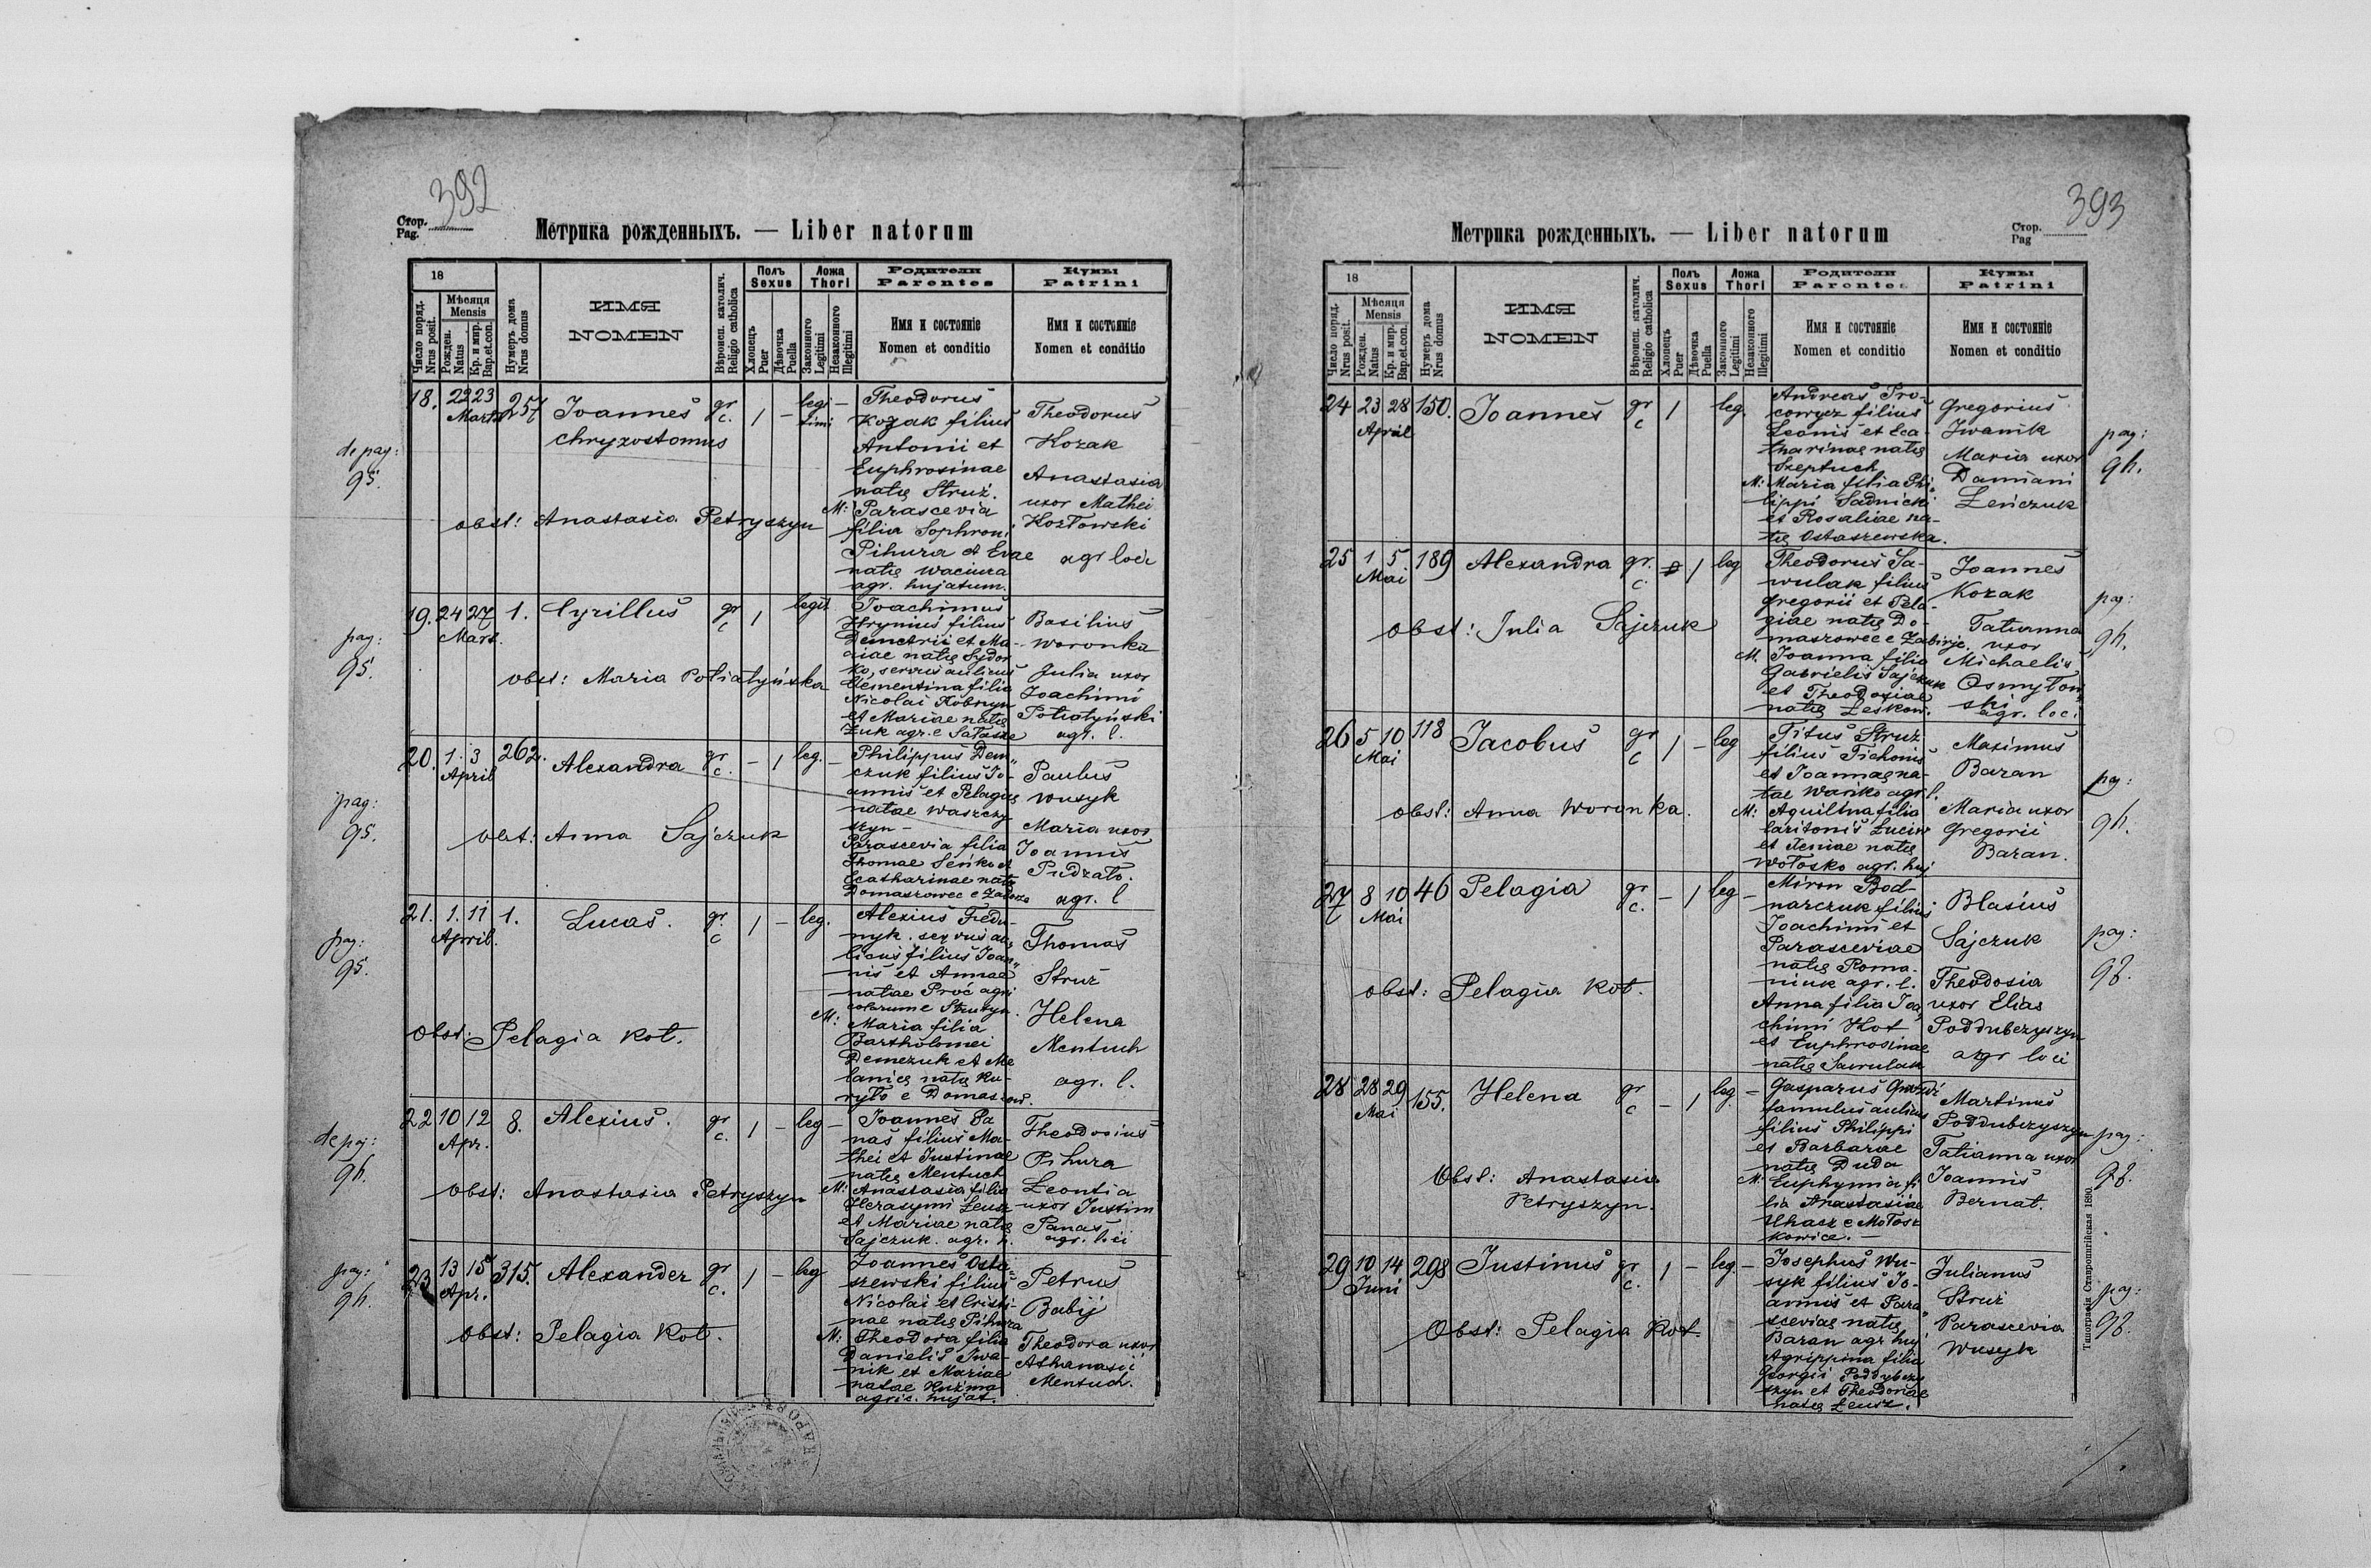 392
Стор.
Pag.
Метрика рожденныхъ. — Liber natorum
18
Число поряд.
Nrus posit.
Мѣсяця
Mensis
Рожден.
Natus
Кр. и мир.
Bap.et.con.
Нумеръ дома
Nrus domus
ИМЯ
NOMEN
Вѣроисп. католич.
Religio catholica
Полъ
Sexus
Хлопецъ
Puer
Дѣвочка
Puella
Ложа
Thori
Законного
Legitimi
Незаконного
Illegitimi
Родители
Parentes
Имя и состояніе
Nomen et conditio
Кумы
Patrini
Имя и состояніе
Nomen et conditio
de pag:
95.
18. 22 23 257 Joannes gr c. 1 – legi timi –
Mart.
chryzostomus
Theodorus
Kozak filius
Antonii et
Euphrosinae
natę Struż.
M: Parascevia
filia Sophroni
Pihura et Evae
natę Waciura
agr. hujatum.
Theodorus
Kozak
Anastasia
uxor Mathei
Kozłowski
agr loci
obst: Anastasia Petryszyn
pag:
95.
19. 24 27 1. Cyrillus gr c 1 legit.
Mart.
Joachimus
Hrynius filius
Demetrii et Ma-
riae natę Sydor
ko, servus aulicus
Clementina filia
Nicolai Kobryn
et Mariae natę
Żuk agr. e Sałasze
Basilius
Woronka
Julia uxor
Joachimi
Potiatyński
agr. l.
obst: Maria Potiatyńska
pag:
95.
20. 1. 3 262. Alexandra gr c. – 1 leg. –
April
Philippus Dem
czuk filius Jo-
annis et Pelagię
natae Waszczy
szyn –
Parascevia filia
Thomae Senko et
Ecatharinae natę
Domaszowec e
Paulus
Wusyk
Maria uxor
Joannis
Pudzało.
agr. l
obst: Anna Sajczuk
pag:
95.
21. 1. 11 1. Lucas. gr. c 1 – leg.
April.
Alexius Fedu-
nyk. servus au
licus filius Joan
nis et Annae
natae Proć agri
colarum e
M: Maria filia
Bartholomei
Demczuk et Me
lanię natę Ku-
ryło e
Thomas
Struż
Helena
Mentuch
agr. l.
Obst: Pelagia Kot.
de pag:
96.
22 10 12 8. Alexius. gr c. 1 – leg –
Apr.
Joannes Pa
nas filius Ma-
thei et Justinae
natę Mentuch
M: Anastasia filia
Herasymi Leusz
et Mariae natę
Sajczuk. agr. h.
Theodosius
Pihura
Leontia
uxor Justini
Panas
agr. loci
Obst: Anastasia Petryszyn
pag:
96.
23 13 15 315. Alexander gr c. 1 – leg
Apr.
Joannes Osta-
szewski filius
Nicolai et Cristi-
nae natę Pihura
M: Theodora filia
Danielis Iwa-
nik et Mariae
natae Kuźma
agric. hujat.
Petrus
Babij
Theodora uxor
Athanasii
Mentuch.
Obst: Pelagia Kot.
393
Стор.
Pag
Метрика рожденныхъ. — Liber natorum
18
Число поряд.
Nrus posit.
Мѣсяця
Mensis
Рожден.
Natus
Кр. и мир.
Bap.et.con.
Нумеръ дома
Nrus domus
ИМЯ
NOMEN
Вѣроисп. католич.
Religio catholica
Полъ
Sexus
Хлопецъ
Puer
Дѣвочка
Puella
Ложа
Thori
Законного
Legitimi
Незаконного
Illegitimi
Родители
Parentes
Имя и состояніе
Nomen et conditio
Кумы
Patrini
Имя и состояніе
Nomen et conditio
24 23 28 150. Joannes gr c 1 leg.
April
Andreas Pro-
conycz filius
Leonis et Eca-
tharinae natę
Szeptuch
M: Maria filia Phi
lippi Sadnicki
et Rosaliae na-
tię Ostaszewska.
Gregorius
Iwanik
Maria uxor
Damiani
Leńczuk
pag:
96.
25 1 5 189 Alexandra gr. c. 1 leg
Mai
Theodorus Sa-
wulak filius
Gregorii et Pela-
giae natę Do-
maszowec e Zabirje.
M. Joanna filia
Gabrielis Sajczuk
et Theodosiae
natę Leskow.
Joannes
Kozak
Tatianna
uxor
Michaelis
Osmyłow
ski
agr. loci
obst: Julia Sajczuk
pag:
96.
26 5 10 118 Jacobus gr c 1 – leg
Mai
Titus Struż
filius Tichonis
et Joannae na-
tae Wańko agr l.
M: Aquilina filia
Caritonis Luciw
et Xeniae natę
Wołosko agr. huj
Maximus
Baran
Maria uxor
Gregorii
Baran.
obst: Anna Woronka.
pag:
96.
27 8 10 46 Pelagia gr c. – 1 leg –
Mai
Miron Bod-
narczuk filius
Joachimi et
Parasceviae
natę Roma-
niuk agr. l.
Anna filia Joa
chimi Kot
et Euphrosinae
natę Sawulak
Blasius
Sajczuk
Theodosia
uxor Elias
Poddubczyszyn
agr loci
obst: Pelagia Kot.
pag:
97.
28 28 29 155. Helena gr c – 1 leg. –
Mai
Gasparus
famulus aulicus
filius Philippi
et Barbarae
natę Duda
M: Euphymia fi
lia Anastasiae
Ilhasz e Mołosz
kowice. –
Martinus
Poddubczyszyn
Tatianna uxor
Joannis
Bernat.
Obst: Anastasia
Petryszyn.
pag:
97.
29 10 14 298 Justinus gr c. 1 – leg. –
Juni
Josephus Wu-
syk filius Jo-
annis et Para
sceviae natę
Baran agr huj
Agrippina filia
Georgii Poddubczy
szyn et Theodorae
natę Leusz.
Julianus
Struż
Parascevia
Wusyk
Obst: Pelagia Kot.
pag:
97.
Типографія Ставропигійская 1890.